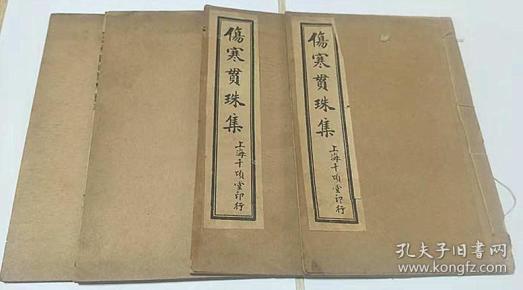 傷寒貫珠集
上海千頃堂印行
傷寒貫珠集
上海千頃堂印行
孔夫子旧书网
www.kongfz.com